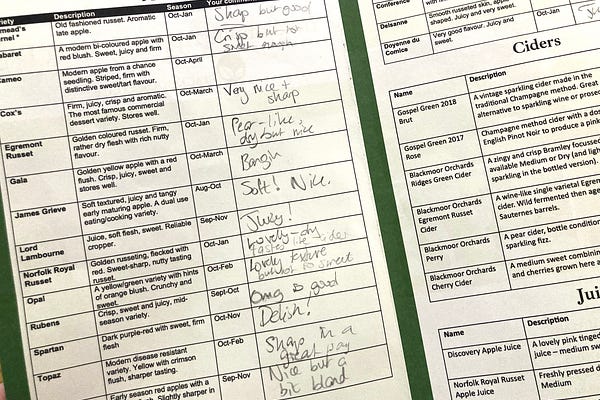 Variety Description Season Your comments
Old fashioned russet. Aromatic
late apple.
Oct-Jan
Sharp but good
A modern bi-coloured apple with
red blush. Sweet, juicy and firm
Oct-Jan
Crisp but not
Cameo
Modern apple from a chance
seedling. Striped, firm with
distinctive sweet/tart flavour.
Oct-April
Cox's
Firm, juicy, crisp and aromatic.
The most famous commercial
dessert variety. Stores well.
Oct-March
Very nice +
sharp
Egremont
Russet
Golden coloured russet. Firm,
rather dry flesh with rich nutty
flavour.
Oct-Jan
Pear-like,
dry but nice
Gala
Golden yellow apple with a red
flush. Crisp, juicy, sweet and
stores well.
Oct-March
James Grieve
Soft textured, juicy and tangy
early maturing apple. A dual use
eating/cooking variety.
Aug-Oct
Soft! Nice.
Lord
Lambourne
Juice, soft flesh, sweet. Reliable
cropper.
Sep-Nov
Juicy!
Norfolk Royal
Russet
Golden russeting, flecked with
red. Sweet-sharp, nutty tasting
russet.
Oct-Jan
Lovely-dry,
tastes like cider
Opal
A yellow/green variety with hints
of orange blush. Crunchy and
sweet.
Oct-Feb
Lovely texture
but a bit too sweet
Rubens
Crisp, sweet and juicy, mid-
season variety.
Sept-Oct
Omg so good
Spartan
Dark purple-red with sweet, firm
flesh
Oct-Nov
Delish!
Topaz
Modern disease resistant
variety. Yellow with crimson
flush, sharper tasting.
Oct-Feb
Sharp in a
great way
Early season red apples with a
flush. Slightly sharper in
Sep-Nov
Nice but a
bit bland
Conference
Delsanne
Smooth russeted skin,
shaped. Juicy and very sweet.
Doyenne du
Comice
Very good flavour. Juicy and
sweet.
Oct-Jan
Ciders
Name Description
Gospel Green 2018
Brut
A vintage sparkling cider made in the
traditional Champagne method. Great
alternative to sparkling wine or prosecco
Gospel Green 2017
Rose
Champagne method cider with a dos
English Pinot Noir to produce a pink
Blackmoor Orchards
Ridges Green Cider
A zingy and crisp Bramley focussed
available Medium or Dry (and ligh
sparkling in the bottled version).
Blackmoor Orchards
Egremont Russet
Cider
A wine-like single varietal Egrem
cider. Wild fermented then age
Sauternes barrels.
Blackmoor Orchards
Perry
A pear cider, bottle condition
sparkling fizz.
Blackmoor Orchards
Cherry Cider
A medium sweet combinin
and cherries grown here a
Jui
Name Description
Discovery Apple Juice
A lovely pink tinged
juice – medium sw
Norfolk Royal Russet
Apple Juice
Freshly pressed d
Medium